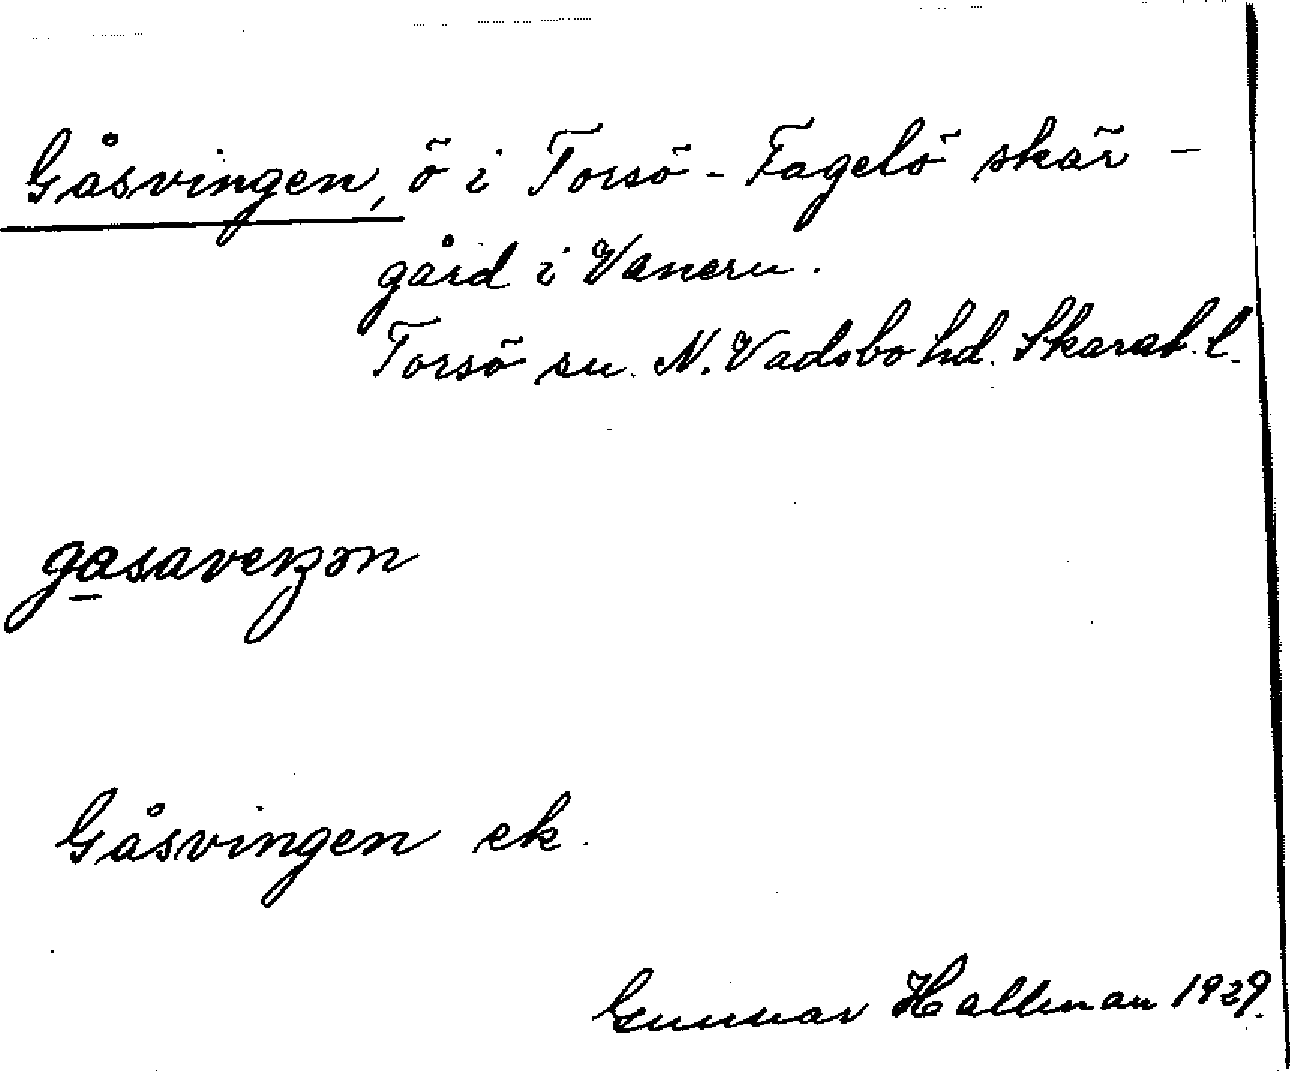 Gåsvingen, ö i Torsö-Fågelö skär-
gård i Vänern.
Torsö sn. N. Vadsbo hd. Skarab. l.
Gåsvingen ek.
Gunnar Hallman 1929.